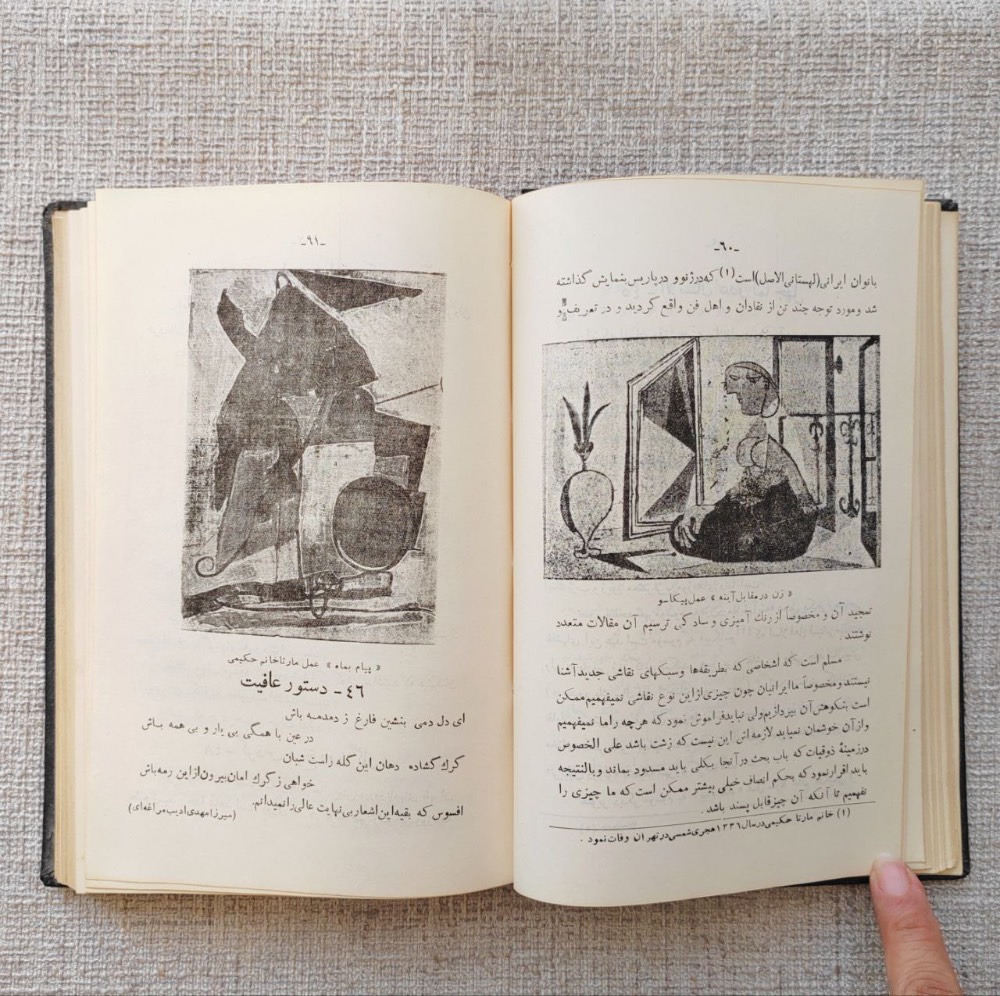 -٦٠-
بانوان ایرانی (لهستانی‌الاصل) است (۱) که در ژنو و در پاریس بنمایش گذاشته
شد و مورد توجه چند تن از نقادان و اهل فن واقع گردید و در تعریف و
« زن در مقابل آینه » عمل پیکاسو
تمجید آن و مخصوصاً از رنك آمیزی و سادگی ترسیم آن مقالات متعدد
نوشتند .
مسلم است که اشخاصی که بطریقه‌ها و سبکهای نقاشی جدید آشنا
نیستند و مخصوصاً ما ایرانیان چون چیزی از این نوع نقاشی نمیفهمیم ممکن
است بنکوهش آن بپردازیم ولی نباید فراموش نمود که هرچه را ما نمیفهمیم
و از آن خوشمان نمیاید لازمه‌اش این نیست که زشت باشد علی الخصوص
در زمینهٔ ذوقیات که باب بحث در آنجا بکلی باید مسدود بماند و بالنتیجه
باید اقرار نمود که بحکم انصاف خیلی بیشتر ممکن است که ما چیزی را
نفهمیم تا آنکه آن چیز قابل پسند باشد .
(۱) خانم مارتا حکیمی در سال ۱۳۳٦ هجری شمسی در تهران وفات نمود .
-٦۱-
« پیام بماه » عمل مارتا خانم حکیمی
٤٦- دستور عافیت
ای دل دمی بنشین فارغ ز دمدمه باش
در عین با همگی بی یار و بی همه باش
گرك گشاده دهان این گله راست شبان
خواهی ز گرك امان بیرون از این رمه باش
افسوس که بقیه این اشعار بی نهایت عالی را نمیدانم.
(میرزا مهدی ادیب مراغه‌ای)